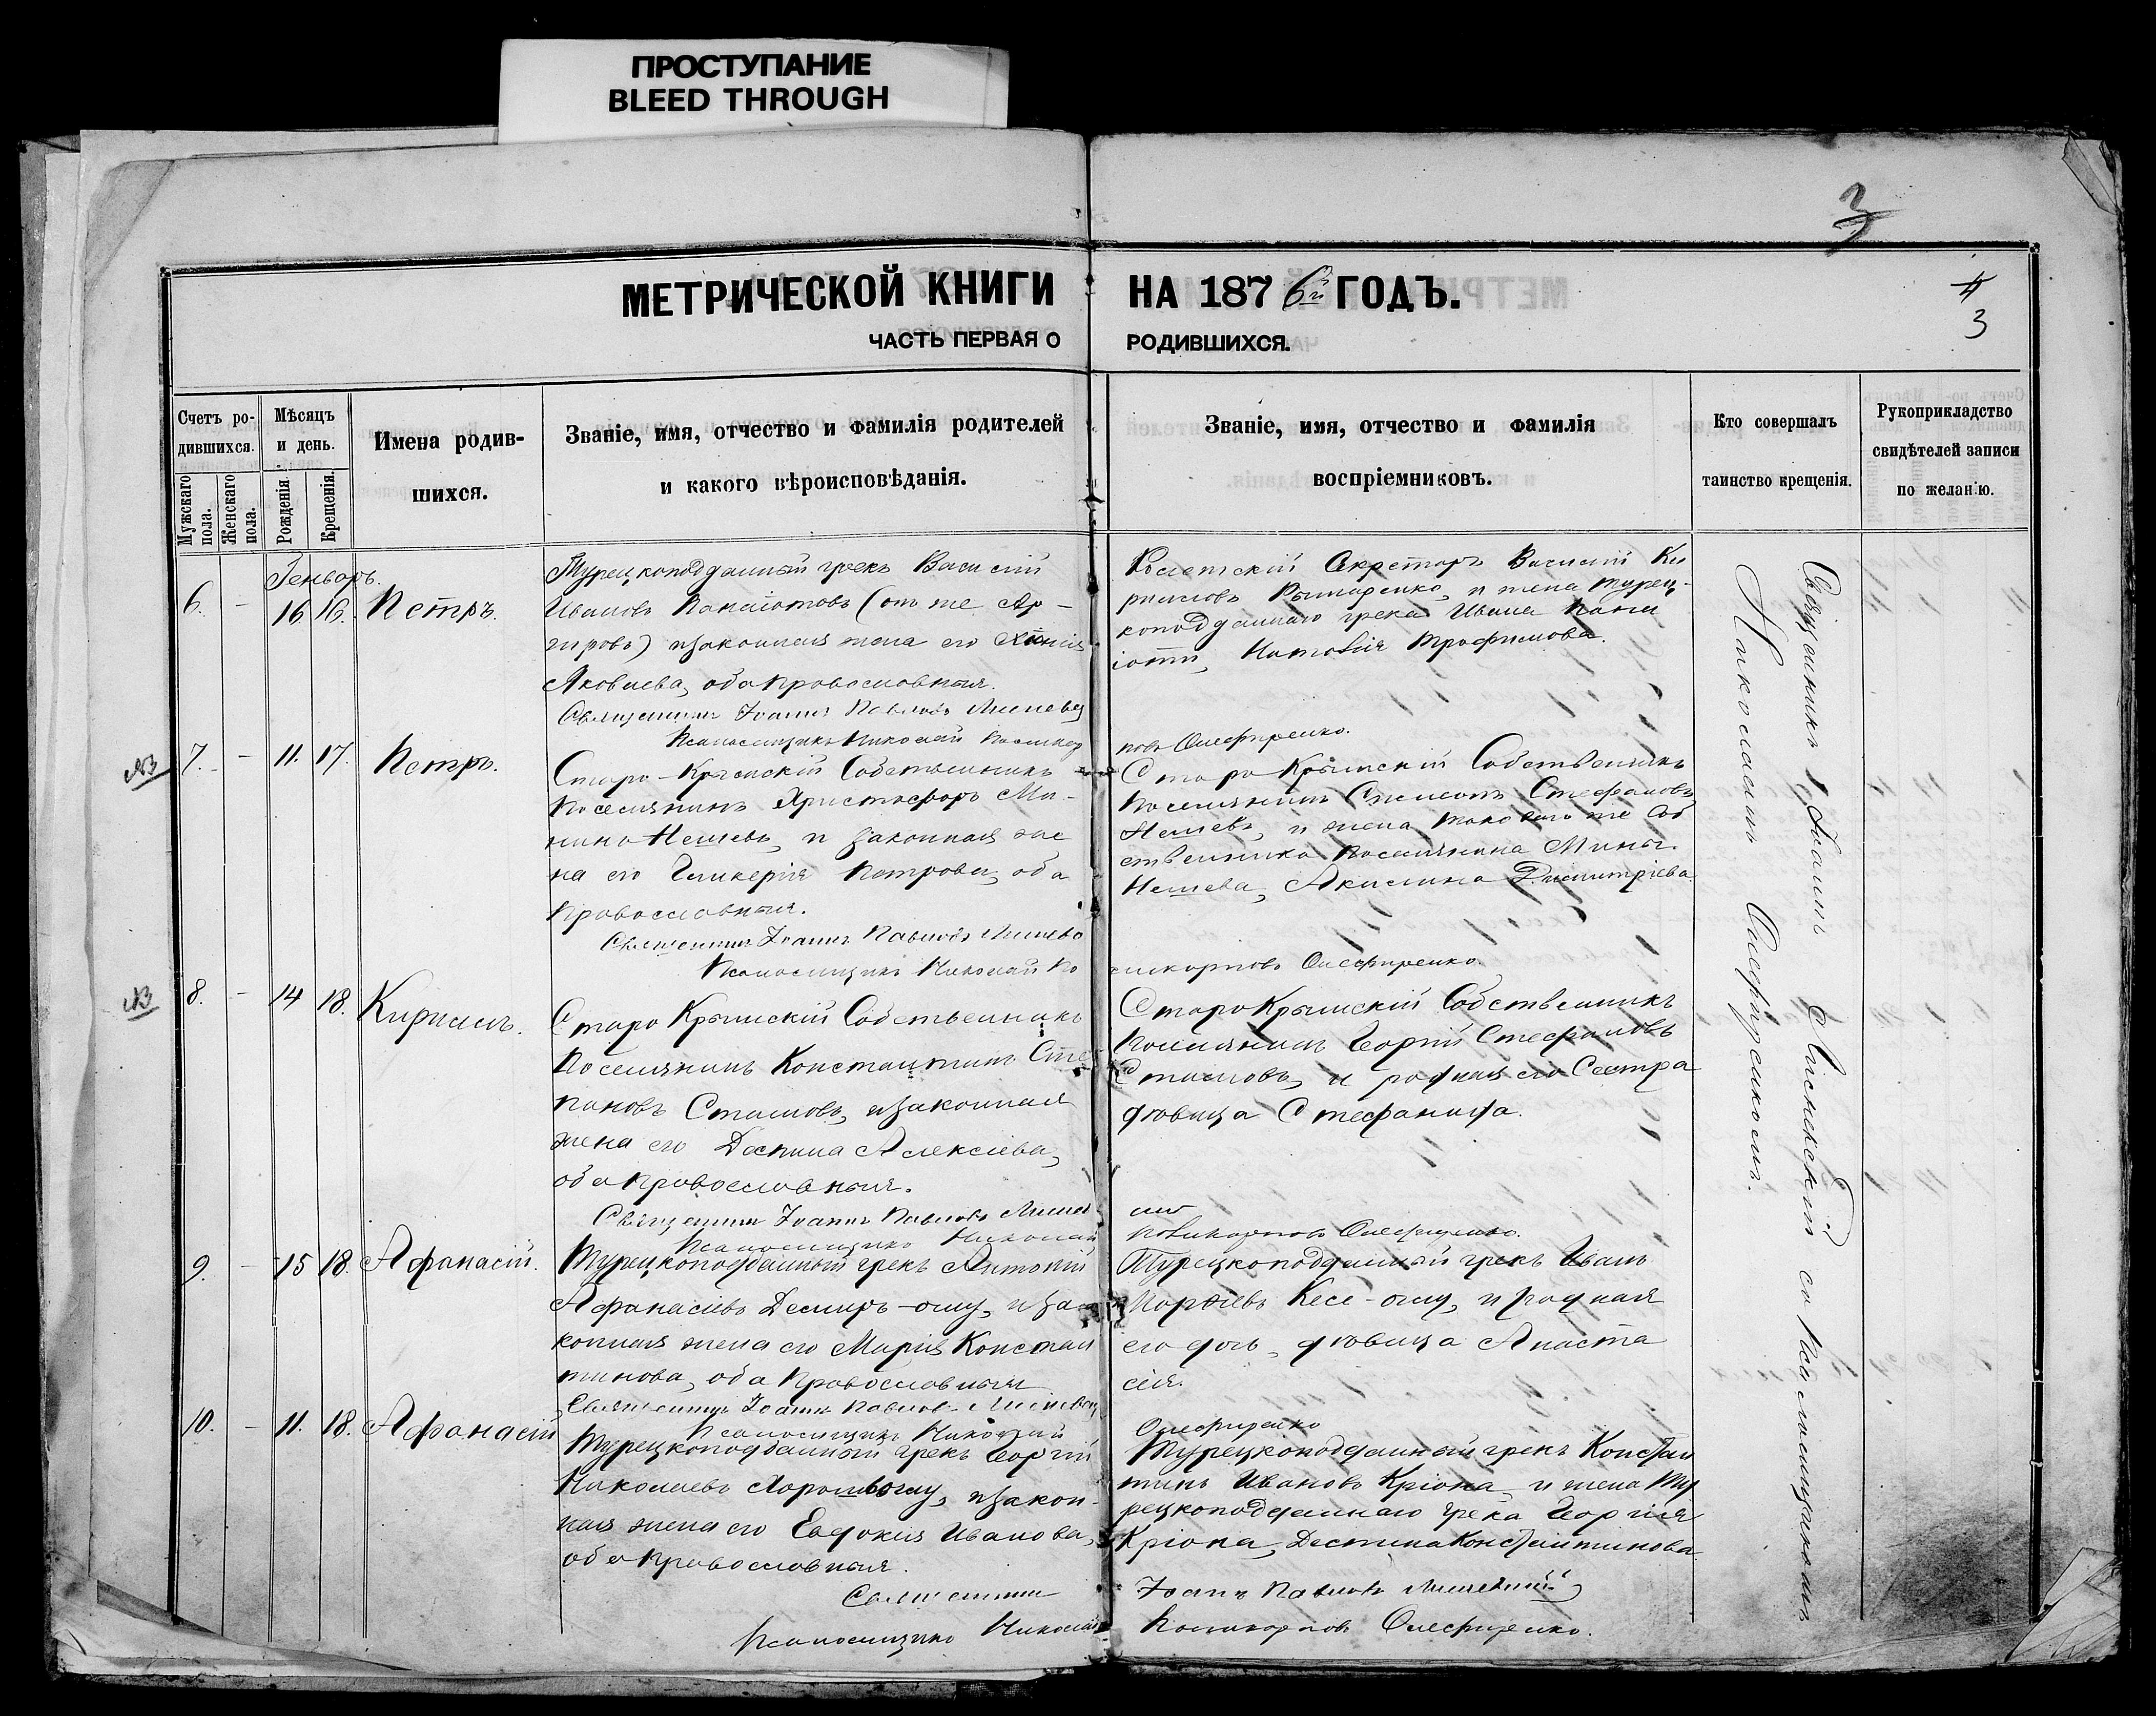 ПРОСТУПАНИЕ
BLEED THROUGH
3
МЕТРИЧЕСКОЙ КНИГИ НА 1876й ГОДЪ.
4
3
ЧАСТЬ ПЕРВАЯ О РОДИВШИХСЯ.
Счетъ ро-
дившихся.
Мужскаго
пола.
Женскаго
пола.
Мѣсяцъ
и день.
Рожденія.
Крещенія.
Имена родив-
шихся.
Званіе, имя, отчество и фамилія родителей
и какого вѣроисповѣданія.
Званіе, имя, отчество и фамилія
воспріемниковъ.
Кто совершалъ
таинство крещенія.
Рукоприкладство
свидѣтелей записи
по желанію.
Генварь.
6. - 16 16. Петръ.
Турецкоподданный грекъ Василій
Ивановъ Панаіотовъ (онъ же Ар-
гировъ) и законная жена его
Яковлева, оба православныя.
Священникъ Іоаннъ Павловъ
Псаломщикъ Николай
Секретарь Василій Ки
рилловъ и жена турец-
коподданнаго грека Ивана Пана
іоти, Трофимова.
повъ Олефиренко.
NB 7. - 11. 17. Петръ.
Старо-Крымскій Собственникъ
поселянинъ Христофоръ Ми-
на Нешевъ, и законная же
на его Гликерія Петрова, оба
православныя.
Священникъ Іоаннъ Павловъ
Псаломщикъ Николай По
Старо Крымскій Собственникъ
поселянинъ Симеонъ Стефановъ
и жена таковаго же соб
ственника поселянина Мины
Нешева, Акилина Димитріева.
ликарповъ Олефиренко.
NB 8. - 14 18. Кириллъ.
Старо Крымскій Собственникъ
поселянинъ Константинъ Сте
пановъ и законная
жена его Деспина Алексіева,
оба православныя.
Священникъ Іоаннъ Павловъ
Псаломщикъ Николай
Старо Крымскій Собственникъ
поселянинъ Георгій Стефановъ
и родная его сестра
дѣвица Стефанида.
Поликарповъ Олефиренко.
9. - 15 18. Афанасій.
Турецкоподданный грекъ Антоній
Афанасіевъ Демиръ-оглу, и за-
конная жена его Марія Констан
тинова, оба православныя
Священникъ Іоаннъ Павловъ
Псаломщикъ Николай
Турецкоподданный грекъ Иванъ
Кесе-оглу, и родная
его дочь, дѣвица Анаста
сія.
Олефиренко
10. - 11. 18. Афанасій
Турецкоподданный грекъ Георгій
Николаевъ и закон-
ная жена его Евдокія Иванова,
оба православныя.
Священникъ
Псаломщикъ Николай
Турецкоподданный грекъ Констан
тинъ Ивановъ Кріона, и жена ту
рецкоподданнаго грека Георгія
Кріона, Деспина Константинова
Іоаннъ Павловъ
Поликарповъ Олефиренко.
Священникъ Іоаннъ съ Псаломщикомъ
Николаемъ Олефиренкомъ.